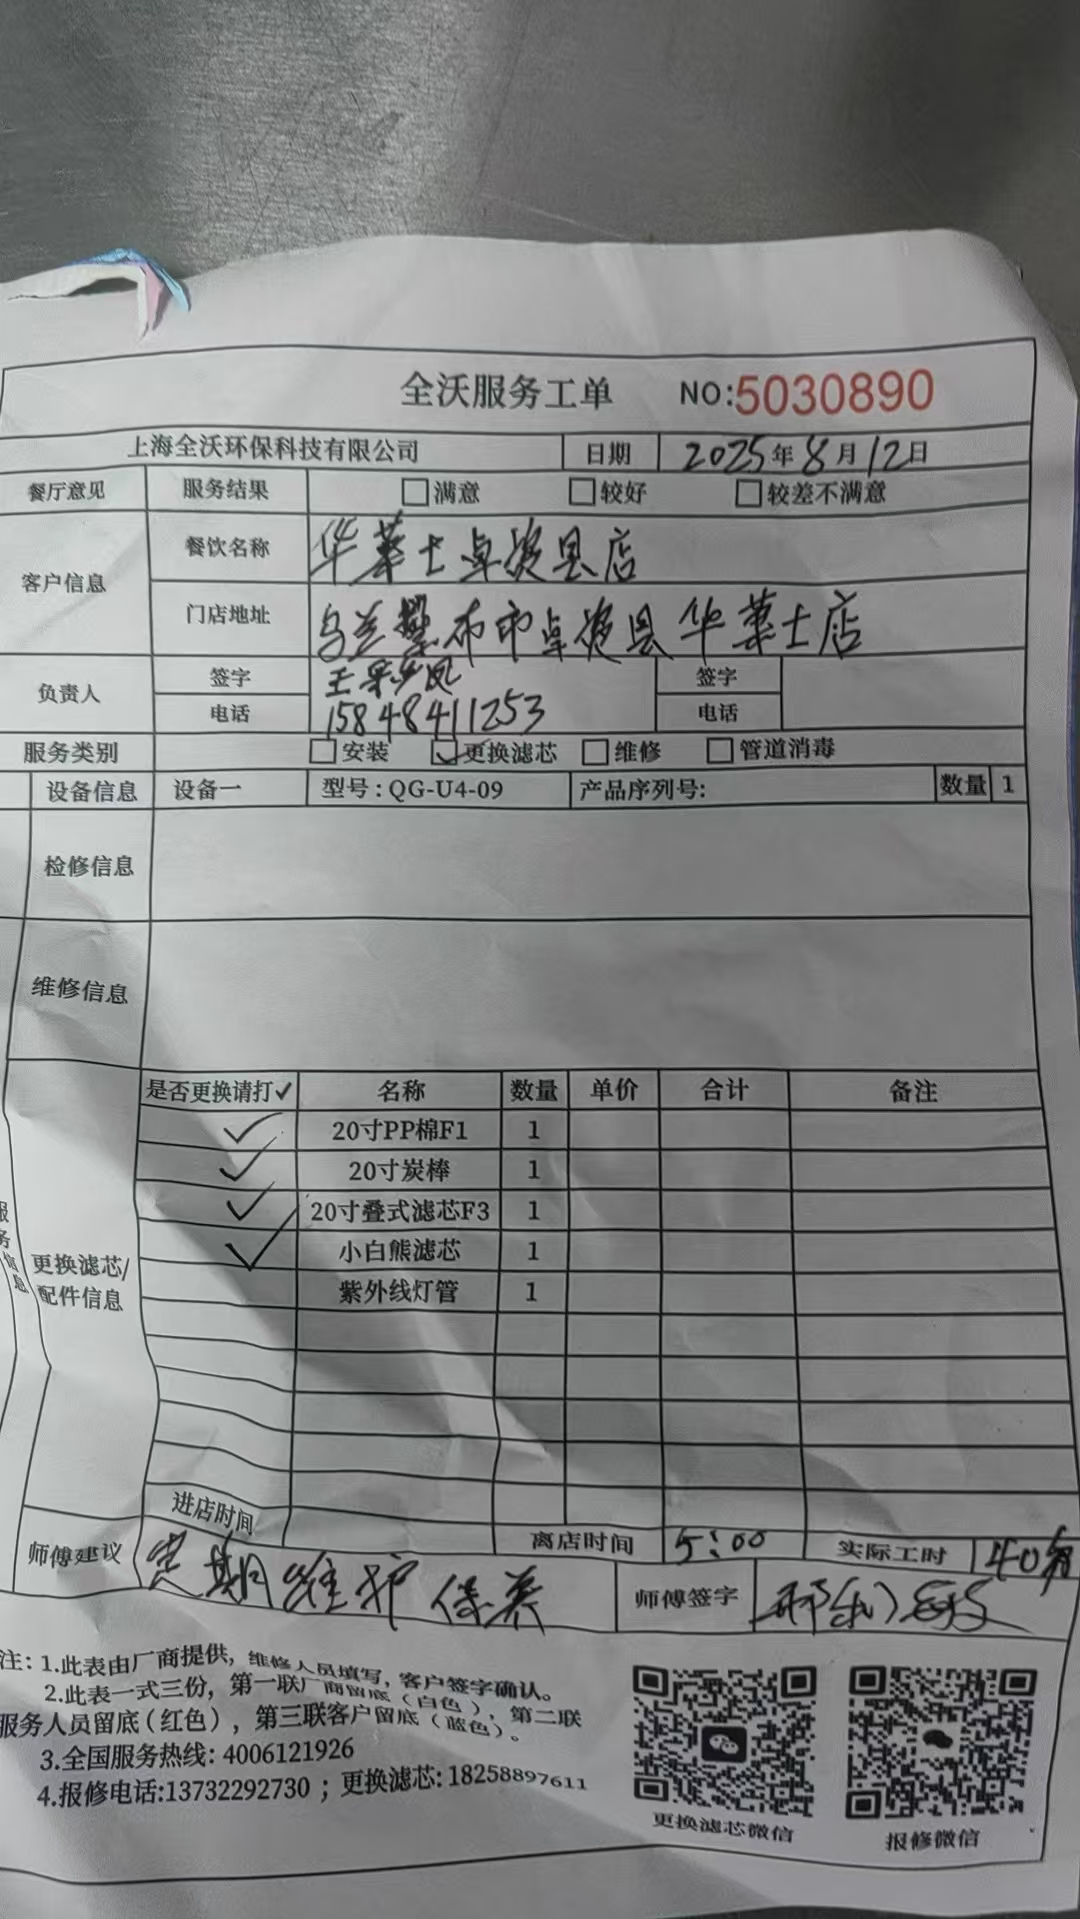 全沃服务工单 NO:5030890
上海全沃环保科技有限公司 日期 2025年8月12日
餐厅意见 服务结果 □满意 □较好 □较差不满意
客户信息 餐饮名称 华莱士卓资县店
门店地址 乌兰察布市卓资县华莱士店
负责人 签字 签字
电话 15848411253 电话
服务类别 □安装 ☑更换滤芯 □维修 □管道消毒
设备信息 设备一 型号:QG-U4-09 产品序列号: 数量 1
检修信息
维修信息
服务信息
更换滤芯/配件信息
是否更换请打✓ 名称 数量 单价 合计 备注
✓ 20寸PP棉F1 1
✓ 20寸炭棒 1
✓ 20寸叠式滤芯F3 1
✓ 小白熊滤芯 1
紫外线灯管 1
进店时间 离店时间 5:00 实际工时 40
师傅建议 定期维护保养 师傅签字
注:1.此表由厂商提供,维修人员填写,客户签字确认。
2.此表一式三份,第一联厂商留底(白色),第二联
服务人员留底(红色),第三联客户留底(蓝色)。
3.全国服务热线:4006121926
4.报修电话:13732292730;更换滤芯:18258897611
更换滤芯微信 报修微信